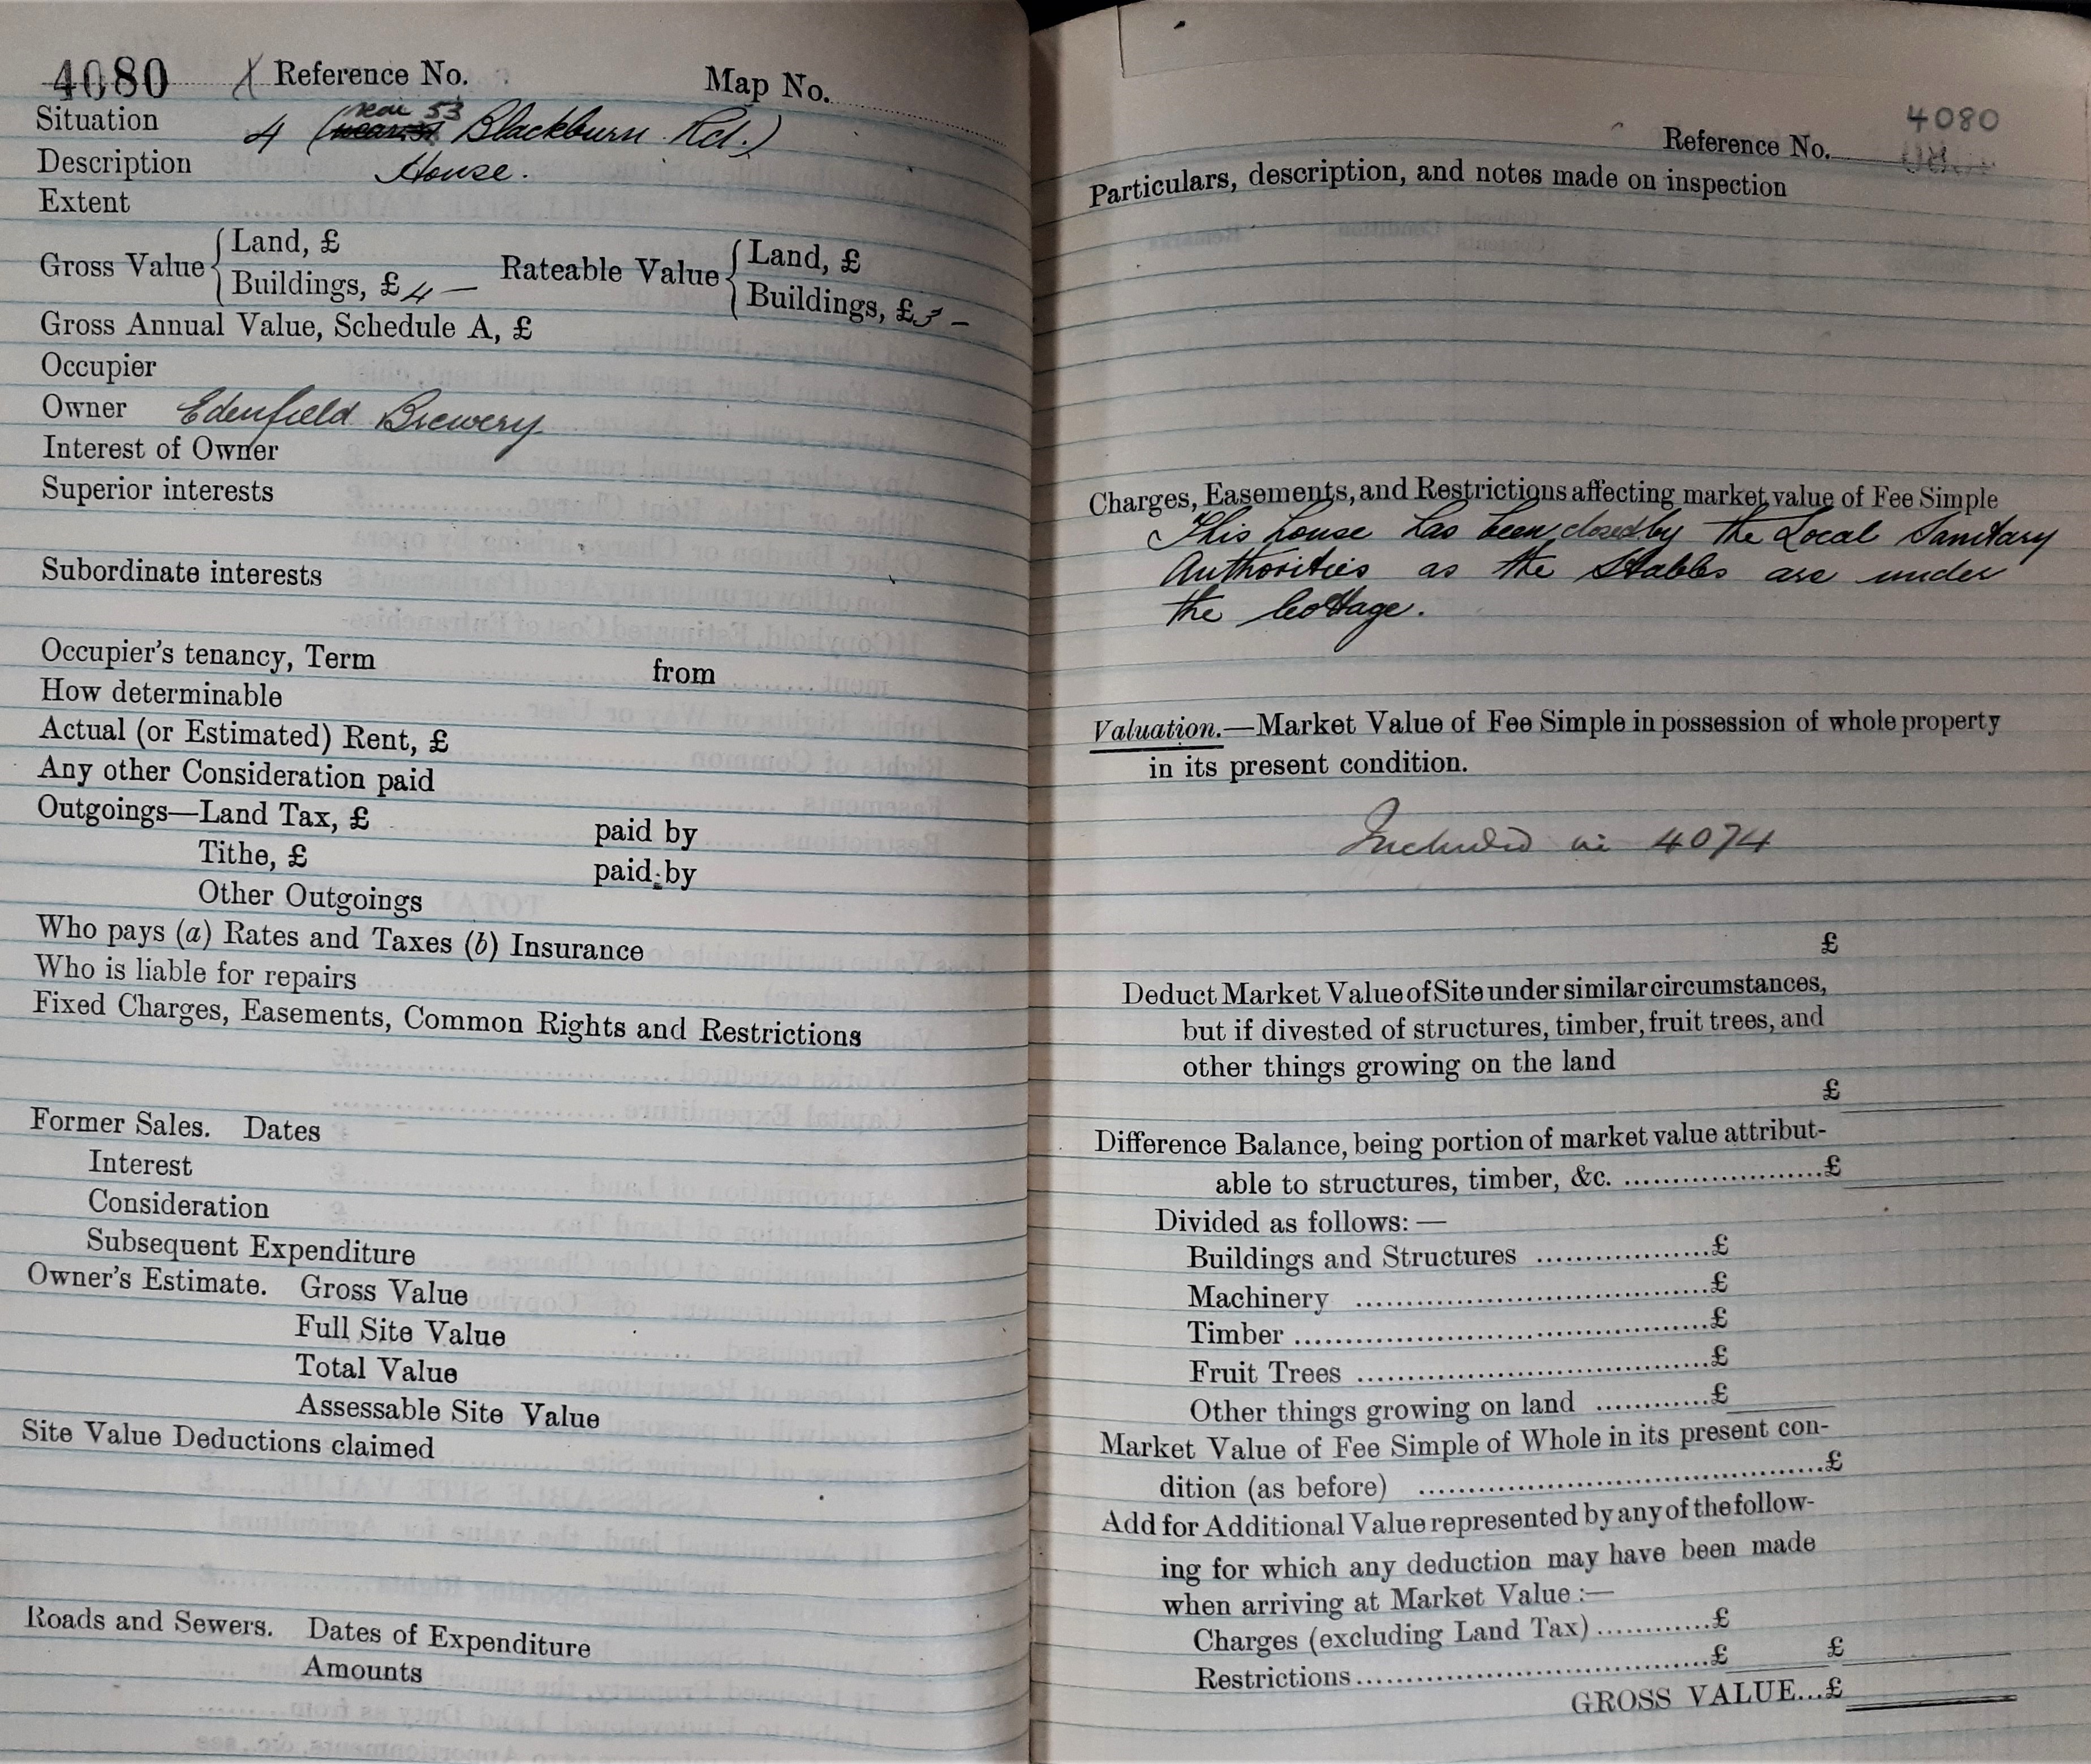 4080 X Reference No. Map No.
rear 53
Situation 4 (nearest Blackburn Rd.)
Description House.
Extent
Gross Value { Land, £
Buildings, £ 4 — Rateable Value { Land, £
Buildings, £ 3 -
Gross Annual Value, Schedule A, £
Occupier
Owner Edenfield Brewery
Interest of Owner
Superior interests
Subordinate interests
Occupier's tenancy, Term from
How determinable
Actual (or Estimated) Rent, £
Any other Consideration paid
Outgoings—Land Tax, £ paid by
Tithe, £ paid by
Other Outgoings
Who pays (a) Rates and Taxes (b) Insurance
Who is liable for repairs
Fixed Charges, Easements, Common Rights and Restrictions
Former Sales. Dates
Interest
Consideration
Subsequent Expenditure
Owner's Estimate. Gross Value
Full Site Value
Total Value
Assessable Site Value
Site Value Deductions claimed
Roads and Sewers. Dates of Expenditure
Amounts
Reference No. 4080
Particulars, description, and notes made on inspection
Charges, Easements, and Restrictions affecting market value of Fee Simple
This house has been closed by the Local Sanitary
Authorities as the Stables are under
the Cottage.
Valuation.—Market Value of Fee Simple in possession of whole property
in its present condition.
Included in 4074
£
Deduct Market Value of Site under similar circumstances,
but if divested of structures, timber, fruit trees, and
other things growing on the land
£
Difference Balance, being portion of market value attribut-
able to structures, timber, &c. ....................£
Divided as follows: —
Buildings and Structures .................£
Machinery ....................................£
Timber ..........................................£
Fruit Trees ....................................£
Other things growing on land ...........£
Market Value of Fee Simple of Whole in its present con-
dition (as before) .........................................£
Add for Additional Value represented by any of the follow-
ing for which any deduction may have been made
when arriving at Market Value :—
Charges (excluding Land Tax) ...........£
Restrictions...................................£ £
GROSS VALUE...£